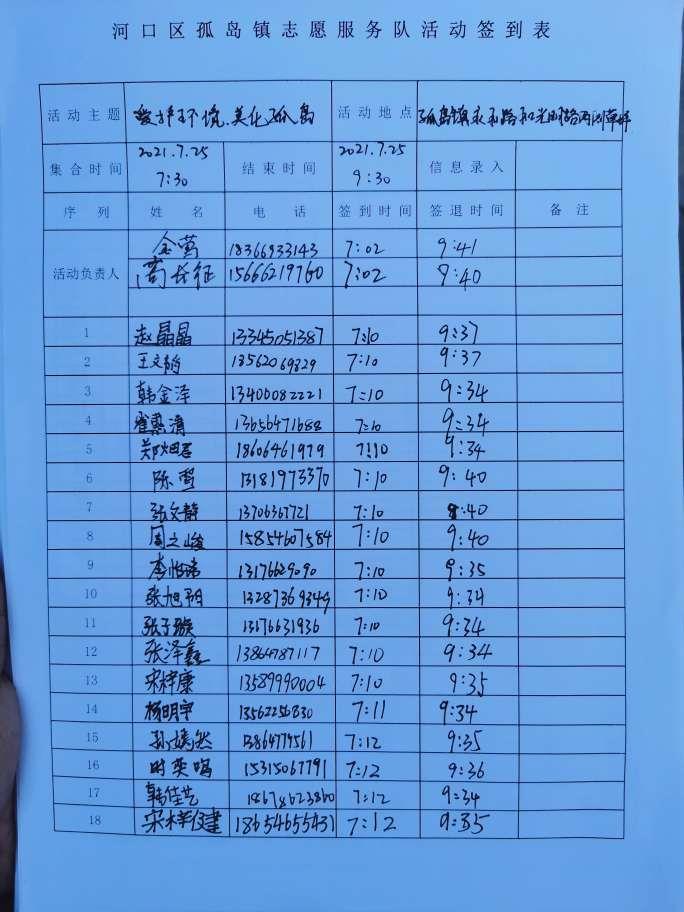 河口区孤岛镇志愿服务队活动签到表
活动主题 爱护环境、美化孤岛 活动地点 孤岛镇永和路和光明路两侧草坪
集合时间 2021.7.25 7:30 结束时间 2021.7.25 9:30 信息录入
序列 姓名 电话 签到时间 签退时间 备注
活动负责人
金莺 18366933143 7:02 9:41
商长征 15666219760 7:02 9:40
1 赵晶晶 13345051387 7:10 9:37
2 王文韬 13562069329 7:10 9:37
3 韩金泽 13406082221 7:10 9:34
4 翟熹清 13656471688 7:10 9:34
5 郑畑君 18606461979 7:10 9:34
6 陈雪 13181973370 7:10 9:40
7 张文静 13706367721 7:10 9:40
8 周之峻 15854607584 7:10 9:40
9 李怡 13176629090 7:10 9:35
10 张旭阳 13287369349 7:10 9:34
11 张子璇 13176631936 7:10 9:34
12 张泽鑫 13864787117 7:10 9:34
13 宋梓康 13589990004 7:10 9:35
14 杨明宇 13562256830 7:11 9:34
15 孙嫣然 13864774561 7:12 9:35
16 时奕鸣 15315067791 7:12 9:36
17 韩佳艺 18678623860 7:12 9:34
18 宋梓健 18654655431 7:12 9:35